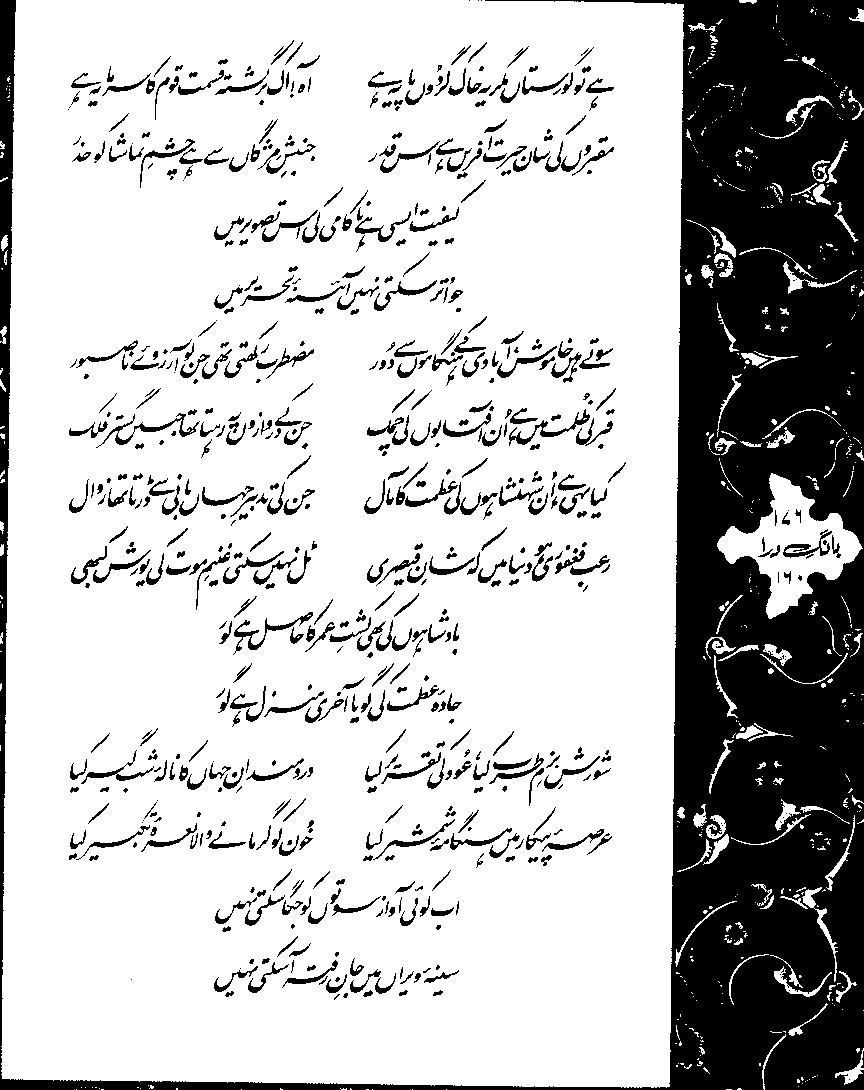 ہے تو گورستاں مگر یہ خاک گردُوں پایہ ہے آہ! اک برگشتہ قسمت قوم کا سرمایہ ہے
مقبروں کی شان حیرت آفریں ہے اس قدر جنبشِ مژگاں سے ہے چشمِ تماشا کو حذر
کیفیت ایسی ہے ناکامی کی اس تصویر میں
جو اتر سکتی نہیں آئینۂ تحریر میں
سوتے ہیں خاموش، آبادی کے ہنگاموں سے دُور مضطرب رکھتی تھی جن کو آرزوئے ناصبور
قبر کی ظُلمت میں ہے اُن آفتابوں کی چمک جن کے دروازوں پہ رہتا تھا جبیں گستر فلک
کیا یہی ہے اُن شہنشاہوں کی عظمت کا مآل جن کی تدبیرِ جہاں بانی سے ڈرتا تھا زوال
رعبِ فغفوری ہو دنیا میں کہ شانِ قیصری ٹل نہیں سکتی غنیمِ موت کی یورش کبھی
بادشاہوں کی بھی کشتِ عمر کا حاصل ہے گور
جادۂ عظمت کی گویا آخری منزل ہے گور
شورشِ بزمِ طرب کیا، عُود کی تقریر کیا درد مندانِ جہاں کا نالۂ شب گیر کیا
عرصۂ پیکار میں ہنگامۂ شمشیر کیا خُون کو گرمانے والا نعرۂ تکبیر کیا
اب کوئی آواز سوتوں کو جگا سکتی نہیں
سینۂ ویراں میں جانِ رفتہ آ سکتی نہیں
۱۷۶
بانگِ درا
۱۶۰